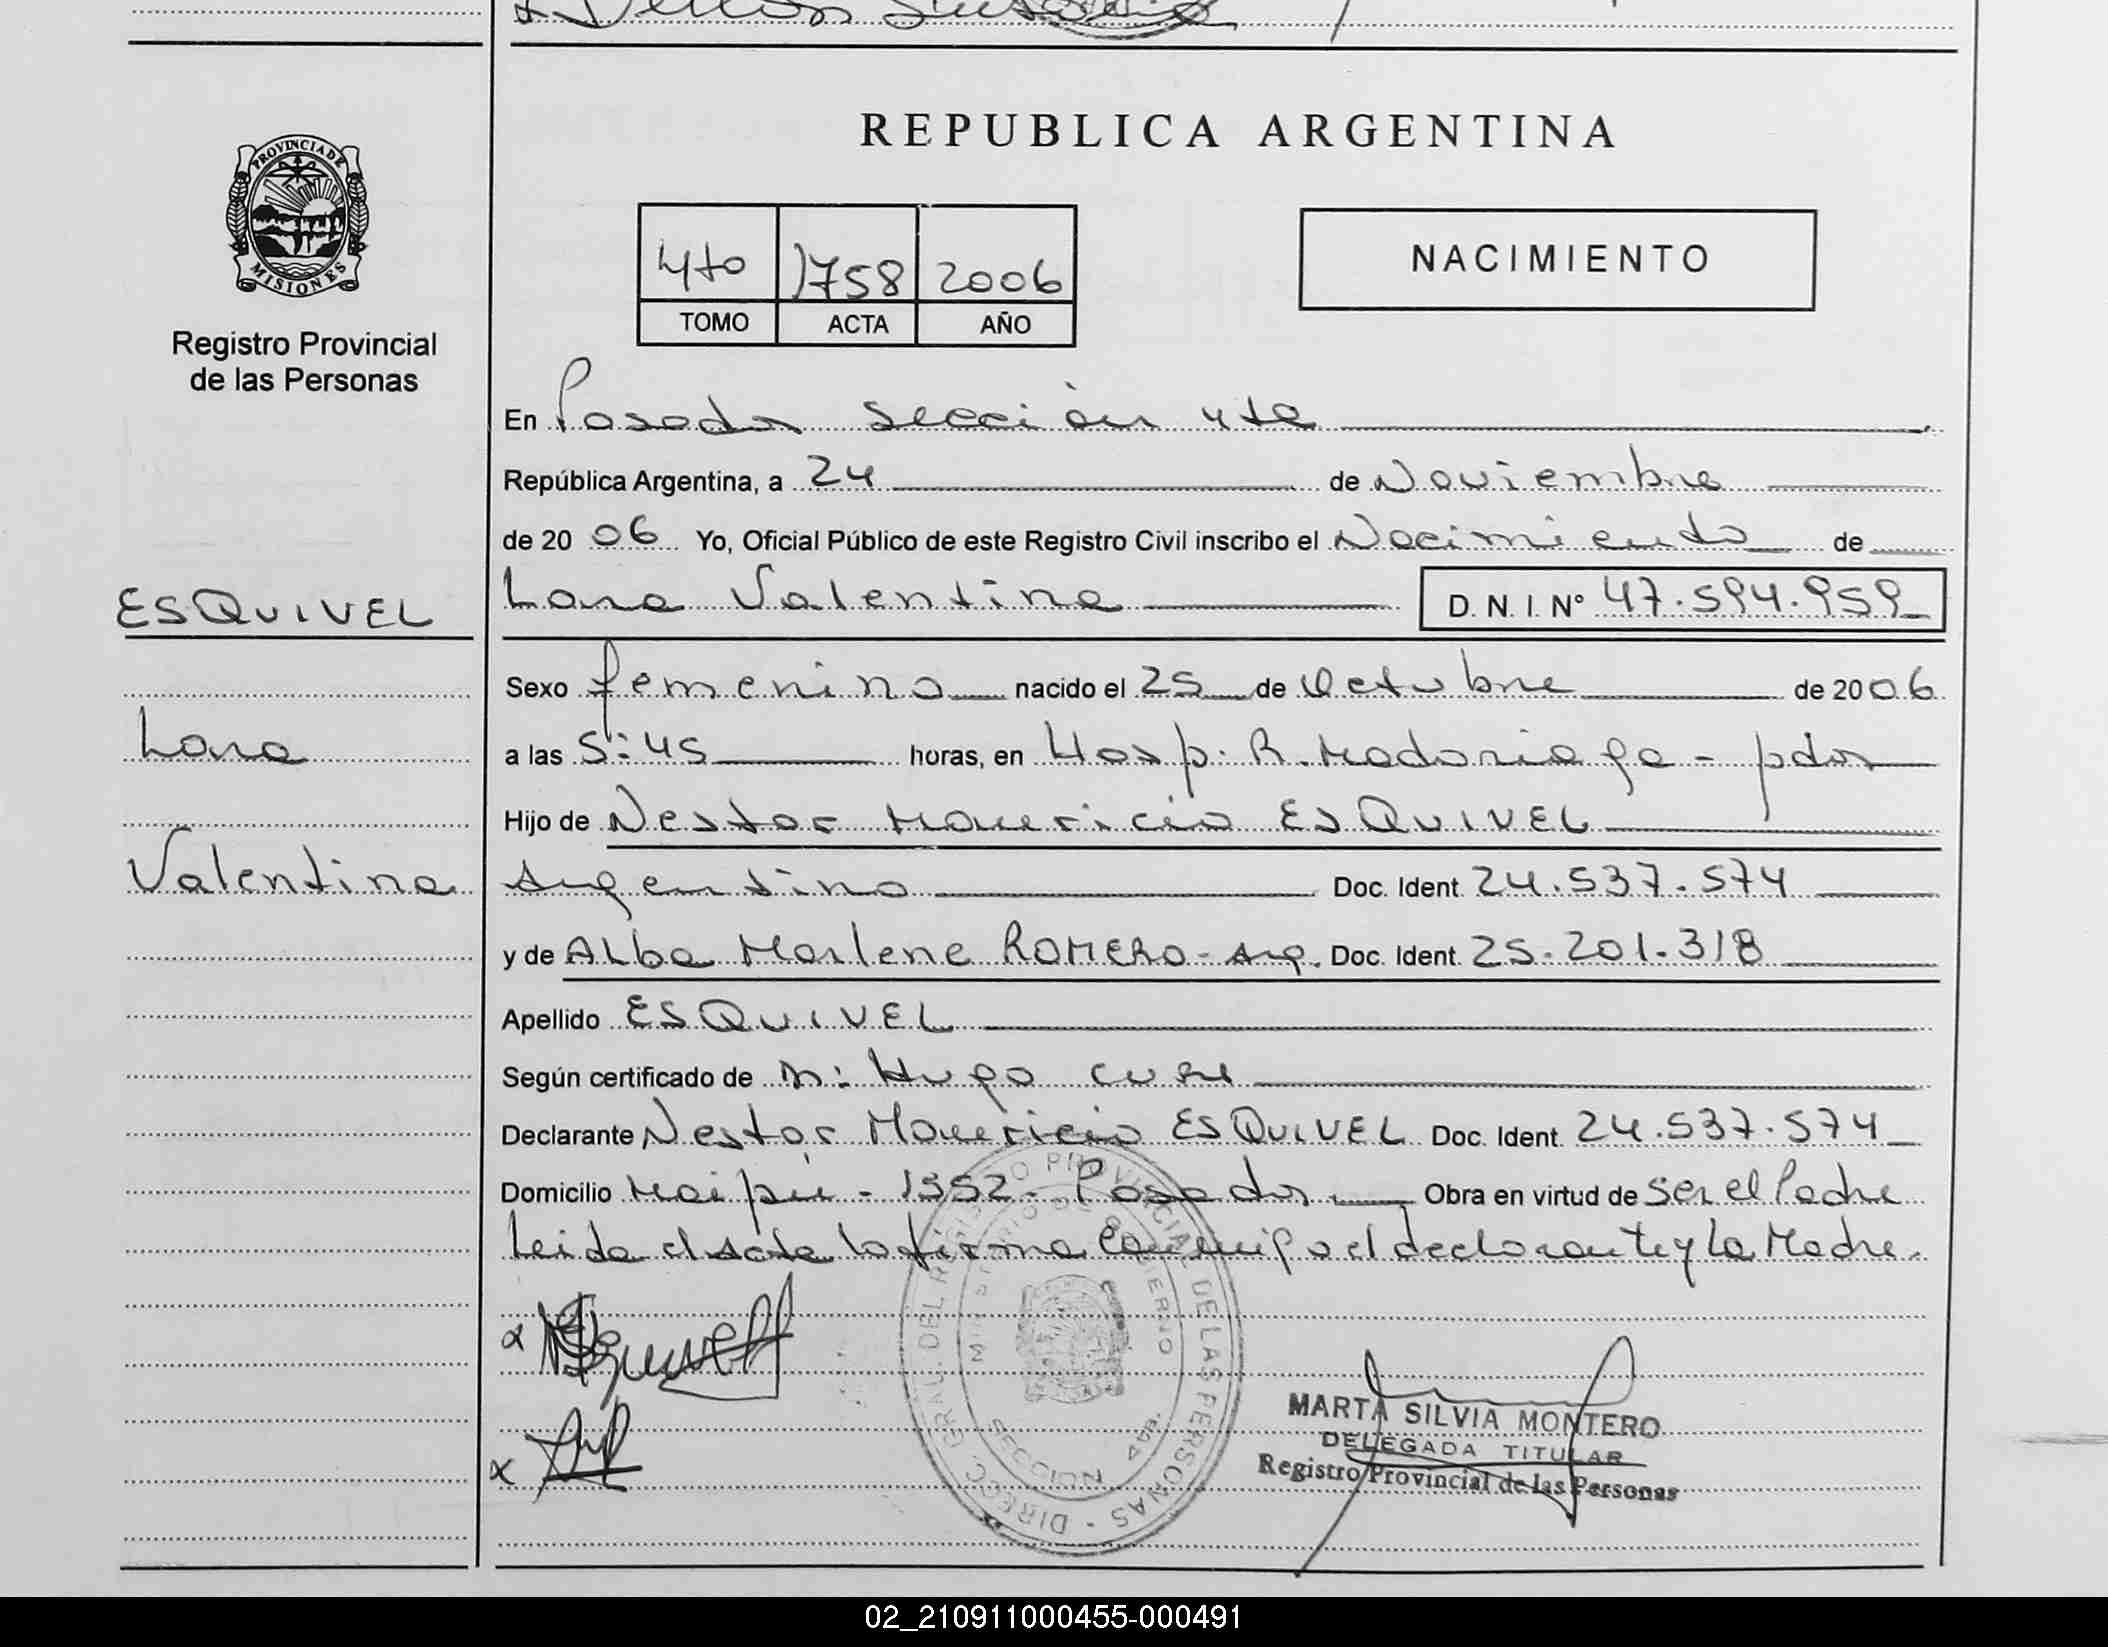 PROVINCIA DE
MISIONES
Registro Provincial
de las Personas
REPUBLICA ARGENTINA
4to 1758 2006
TOMO ACTA AÑO
NACIMIENTO
En Posadas Sección 4ta
República Argentina, a 24 de Noviembre
de 20 06 Yo, Oficial Público de este Registro Civil inscribo el Nacimiento de
ESQUIVEL
Lara Valentina D. N. I. N° 47.594.959
Sexo femenino nacido el 25 de Octubre de 20 06
Lara
a las 5:45 horas, en Hosp. R. Madariaga - pdas
Hijo de Nestor Mauricio ESQUIVEL
Valentina
Argentino Doc. Ident. 24.537.574
y de ALba Marlene ROMERO - Arg. Doc. Ident. 25.201.318
Apellido ESQUIVEL
Según certificado de Hugo
Declarante Nestor Mauricio ESQUIVEL Doc. Ident. 24.537.574
Domicilio Maipú - 1552 - Posadas Obra en virtud de ser el Padre
Leida el acta la firma conmigo el declarante y la Madre.
DIRECC. GRAL. DEL REGISTRO PROVINCIAL DE LAS PERSONAS
MINISTERIO DE GOBIERNO
SECCION 4ta.
MARTA SILVIA MONTERO
DELEGADA TITULAR
Registro Provincial de las Personas
02_210911000455-000491